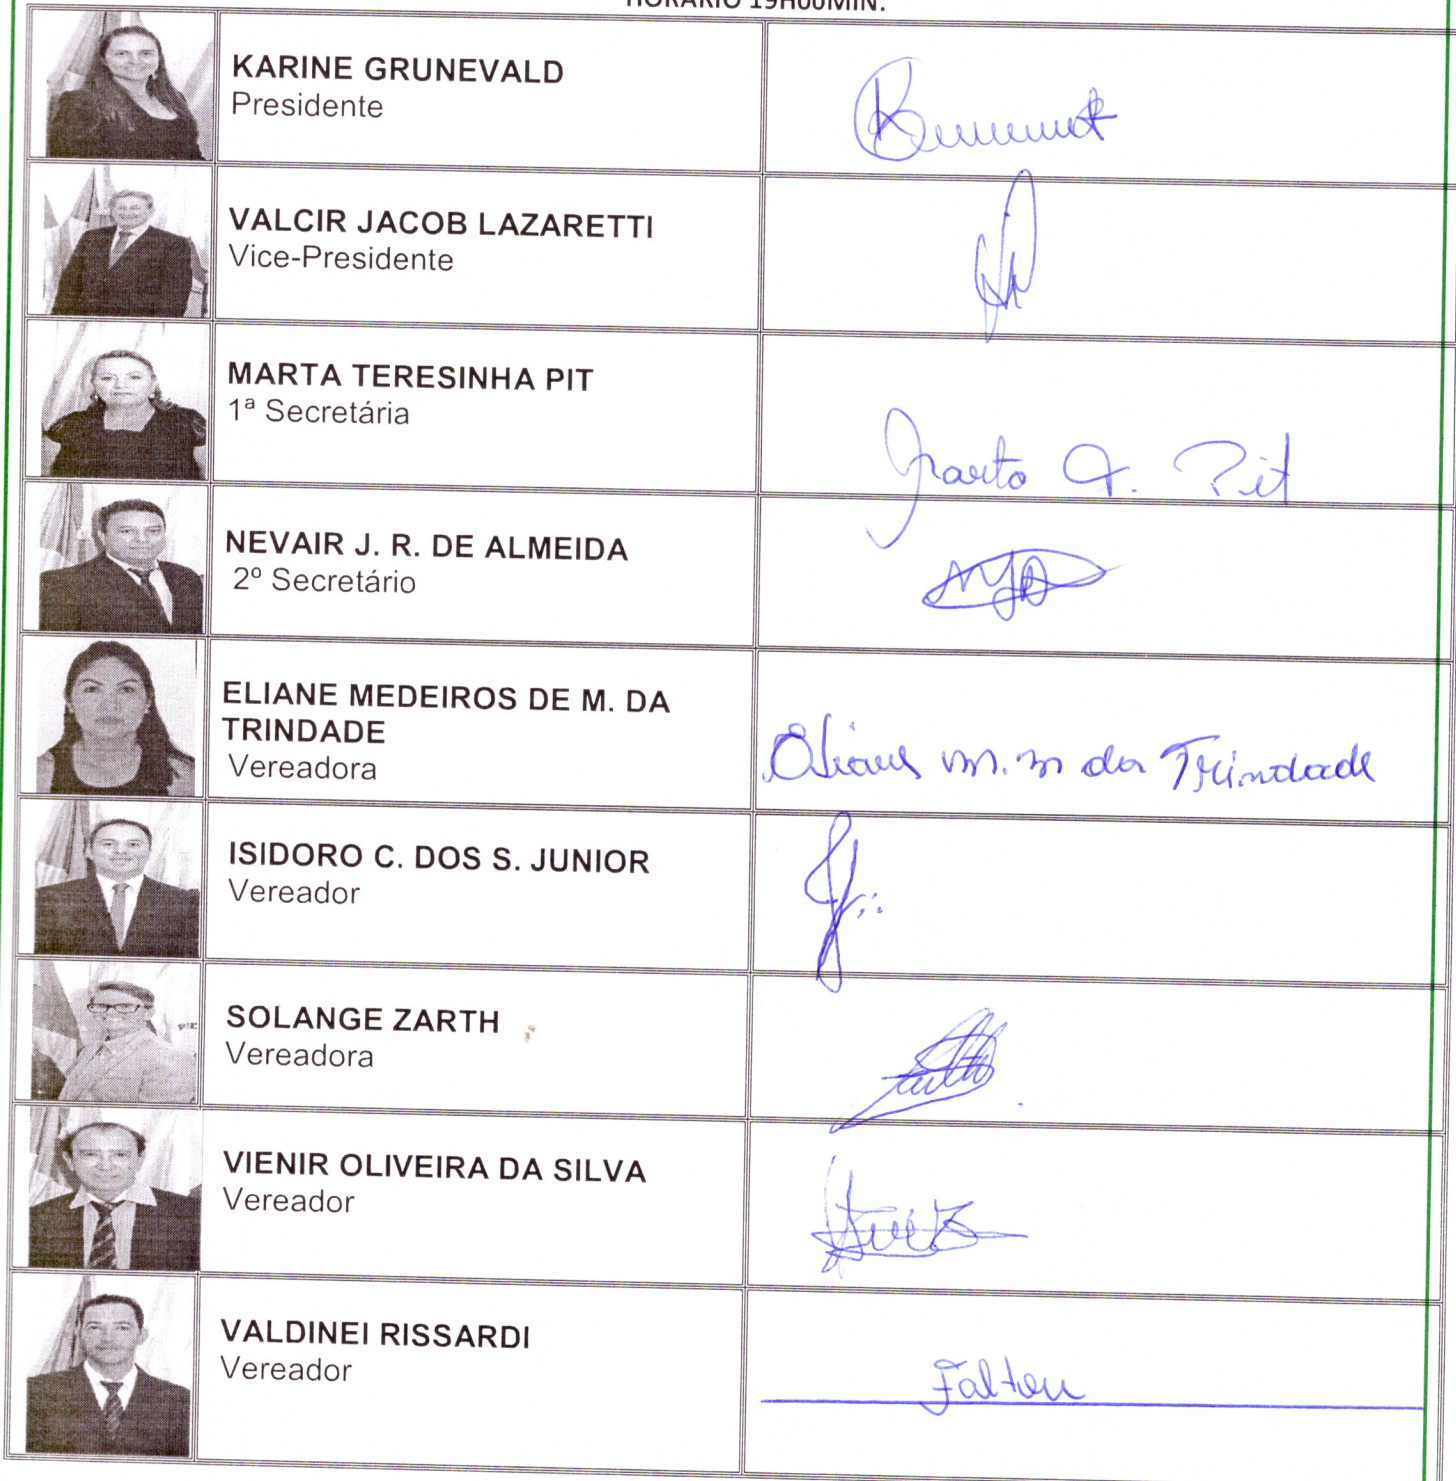 HORÁRIO 19H00MIN.
KARINE GRUNEVALD
Presidente
VALCIR JACOB LAZARETTI
Vice-Presidente
MARTA TERESINHA PIT
1ª Secretária
Marta T. Pit
NEVAIR J. R. DE ALMEIDA
2º Secretário
ELIANE MEDEIROS DE M. DA
TRINDADE
Vereadora
Eliane m. m da Trindade
ISIDORO C. DOS S. JUNIOR
Vereador
SOLANGE ZARTH
Vereadora
VIENIR OLIVEIRA DA SILVA
Vereador
VALDINEI RISSARDI
Vereador
Faltou